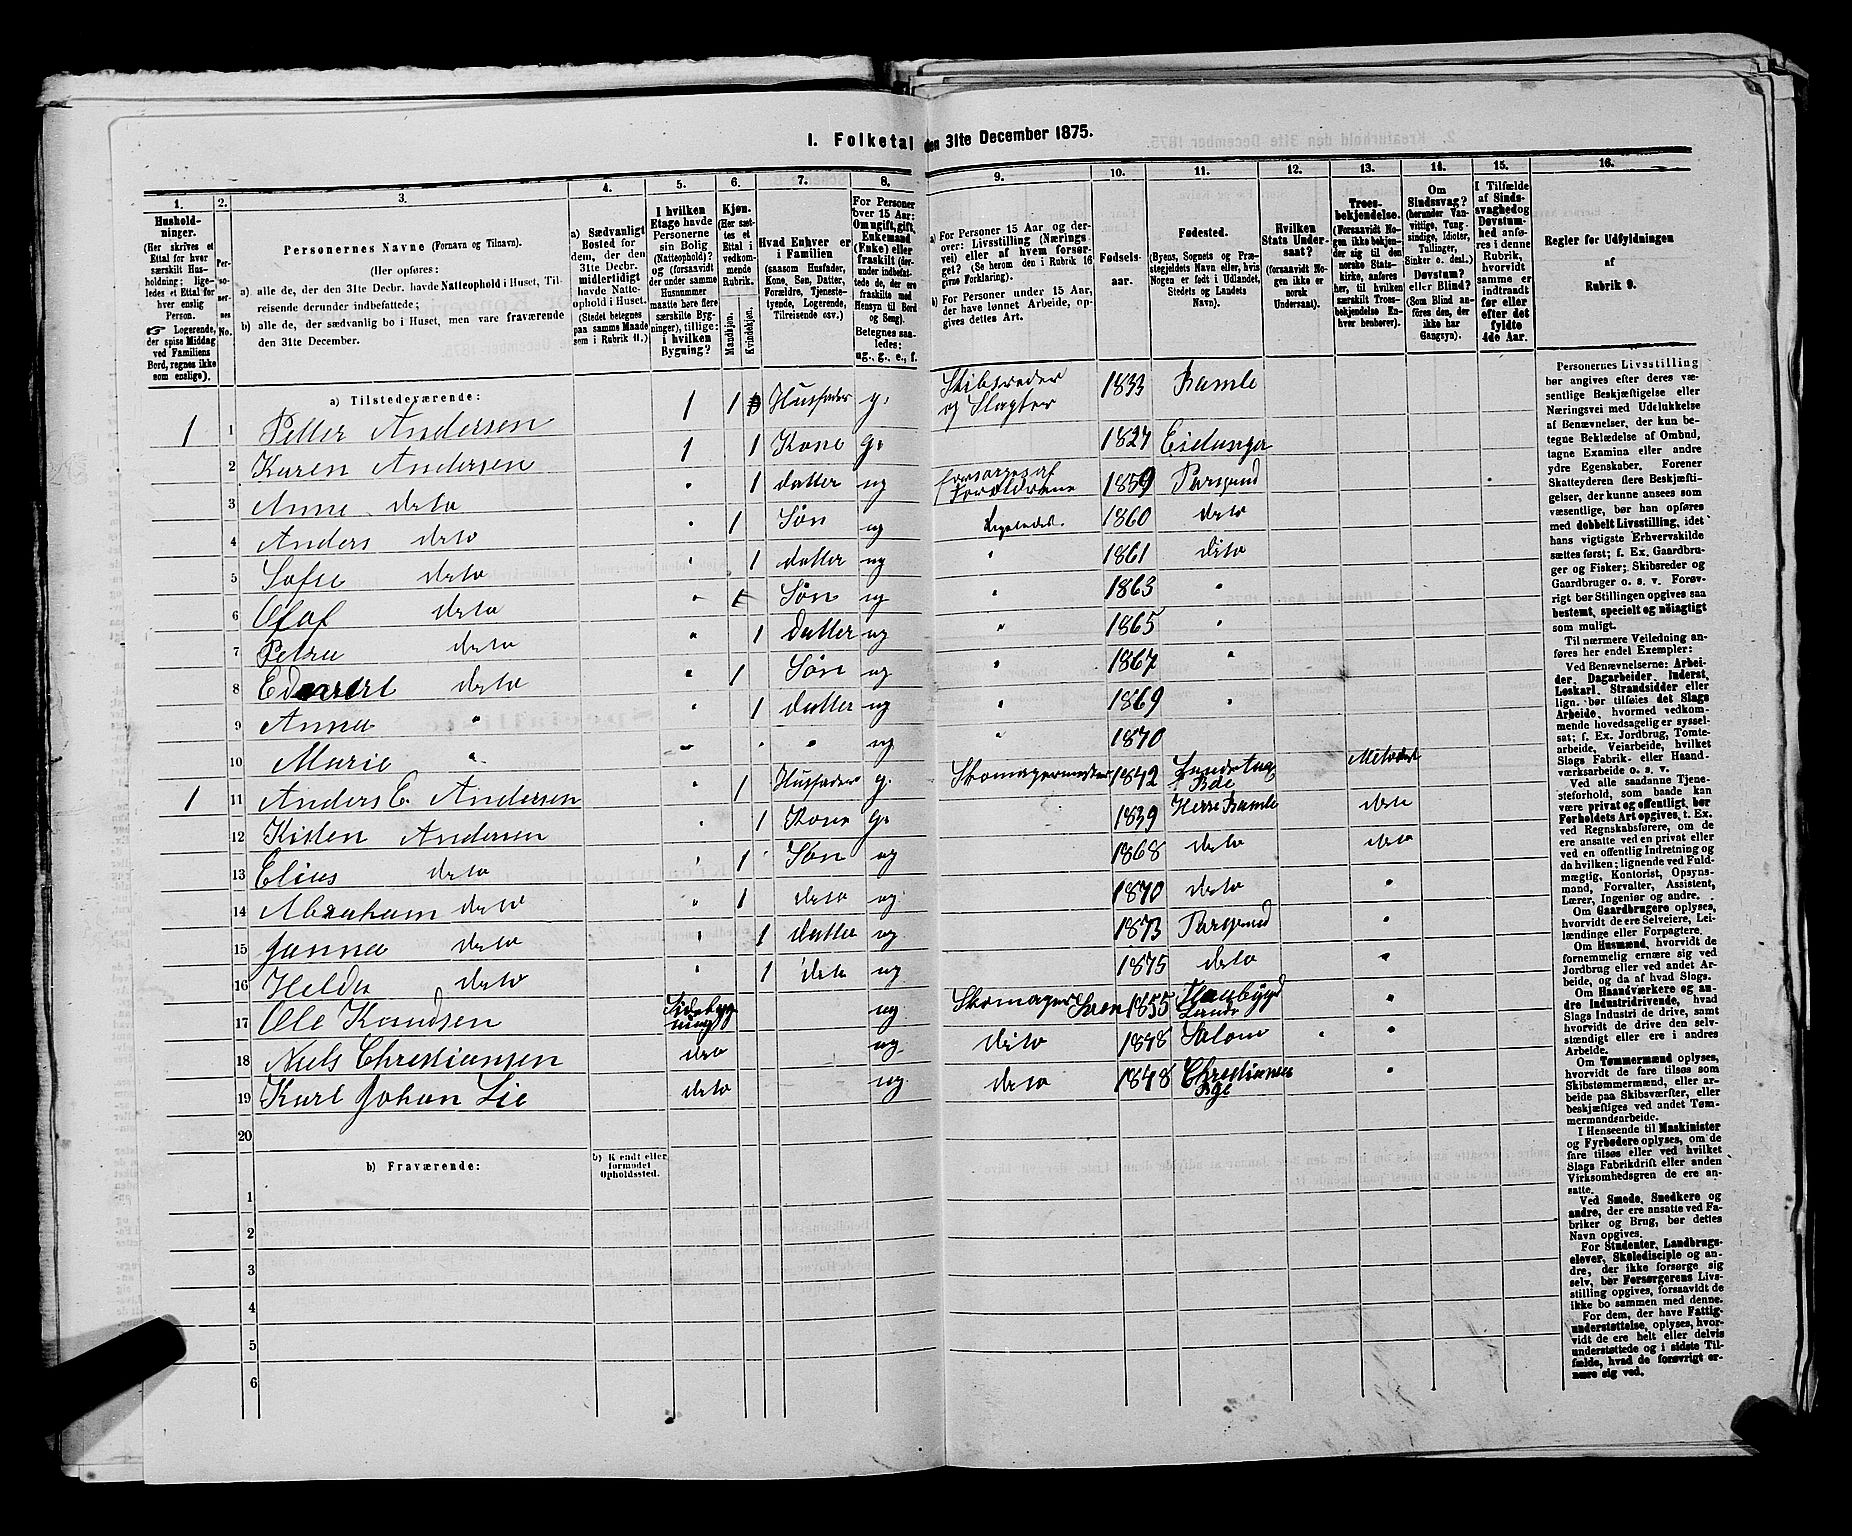 I. Folketal den 31te December 1875.
1. 2. 3. 4. 5. 6. 7. 8. 9. 10. 11. 12. 13. 14. 15. 16.
Husholdninger.
(Her skrives et
Ettal for hver
særskilt Husholdning;
ligeledes et Ettal for
hver enslig
Person.
Logerende,
der spise Middag
ved Familiens
Bord, regnes ikke
som enslige).
Personernes No.
Personernes Navne (Fornavn og Tilnavn).
(Her opføres:
a) alle de, der den 31te Decbr. havde Natteophold i Huset, Tilreisende
derunder indbefattede;
b) alle de, der sædvanlig bo i Huset, men vare fraværende
den 31te December.
a) Sædvanligt
Bosted for
dem, der den
31te Decbr.
midlertidigt
havde Natteophold
i Huset.
(Stedet betegnes
paa samme Maade
sem i Rubrik 11.)
I hvilken
Etage havde
Personerne
sin Bolig
(Natteophold)?
og (forsaavidt
der under samme
Husnummer
maatte høre flere
særskilte Bygninger),
tillige:
i hvilken
Bygning?
Kjøn.
(Her sættes
et
Ettal i
vedkommende
Rubrik.
Mandkjøn.
Kvindekjøn.
Hvad Enhver er
i Familien
(saasom Husfader,
Kone, Søn, Datter,
Forældre, Tjenestetyende,
Logerende,
Tilreisende osv.)
For Personer
over 15 Aar:
Om ugift, gift,
Enkemand
(Enke) eller
fraskilt (derunder
indbefattede
de, der ere
fraskilte med
Hensyn til Bord
og Seng).
Betegnes saaledes:
ug., g., e., f.
a) For Personer 15 Aar og derover:
Livsstilling (Næringsvei)
eller af hvem forsørget?
(Se herom den i Rubrik 16
givne Forklaring).
b) For Personer under 15 Aar,
der have lønnet Arbeide, opgives
dettes Art.
Fødselsaar.
Fødested.
(Byens, Sognets og Præstegjeldets
Navn eller, hvis
Nogen er født i Udlandet,
Stedets og Landets
Navn).
Hvilken
Stats Undersaat?
(forsaavidt Nogen
ikke er
norsk
Undersaat).
Troesbekjendelse.
(Forsaavidt Nogen
ikke bekjender
sig til den
norske Statskirke,
anføres
her, til hvilken
særskilt Troesbekjendelse
Enhver
henhører).
Om
Sindssvag?
(herunder Vanvittige,
Tungsindige,
Idioter,
Tullinger,
Sinker o. desl.)
Døvstum?
eller Blind?
(Som Blind anføres
den, der
ikke har
Gangsyn).
I Tilfælde
af Sindssvaghed
og
Døvstumhed
anføres
i denne
Rubrik,
hvorvidt
samme er
indtraadt
før eller
efter det
fyldte
4de Aar.
Regler for Udfyldningen
af
Rubrik 9.
a) Tilstedeværende:
1 1 Petter Andersen 1 1 Husfader g. Skibsreder og Slagter 1833 Bamle
2 Karen Andersen 1 1 Kone g. 1827 Eidanger
3 Anne deto " 1 datter ug forsørges af Forældrene 1859 Porsgrund
4 Anders deto " 1 Søn ug Ligeledes. 1860 deto
5 Sofie deto " 1 datter ug " 1861 dito
6 Olaf deto " 1 Søn ug " 1863 "
7 Petra deto " 1 Datter ug " 1865 "
8 Edvard deto " 1 Søn ug " 1867 "
9 Anna " " 1 datter ug " 1869 "
10 Marie " " " " ug " 1870
1 11 Anders C. Andersen " 1 Husfader g. Skomagermester 1842 Metodist
12 Kisten Andersen " 1 Kone g. 1839 Herre Bamle deto
13 Elias deto " 1 Søn ug 1868 deto deto
14 Abraham deto " 1 deto ug 1870 deto "
15 Janna deto " 1 datter ug 1873 Porsgrund "
16 Helda deto " 1 deto ug 1875 deto "
17 Ole Knudsen Sidebygning ug Skomager Sven 1855 "
18 Niels Christiansen deto ug dito 1848 "
19 Karl Johan Lie deto ug. deto 1848 "
20
b) Fraværende:
b) Kjendt eller
formodet
Opholdssted.
1
2
3
4
5
6
Personernes Livsstilling
bør angives efter deres væsentlige
Beskjæftigelse eller
Næringsvei med Udelukkelse
af Benævnelser, der kun betegne
Beklædelse af Ombud,
tagne Examina eller andre
ydre Egenskaber. Forener
Skatteyderen flere Beskjæftigelser,
der kunne ansees som
væsentlige, bør han opføres
med dobbelt Livsstilling, idet
hans vigtigste Erhvervskilde
sættes først; f. Ex. Gaardbruger
og Fisker; Skibsreder og
Gaardbruger o. s. v. Forøvrigt
bør Stillingen opgives saa
bestemt, specielt og nöiagtigt
som muligt.
Til nærmere Veiledning anføres
her endel Exempler:
Ved Benævnelserne: Arbeider,
Dagarbeider, Inderst,
Løskarl, Strandsidder eller
lign. bør tilføies det Slags
Arbeide, hvormed vedkommende
hovedsagelig er sysselsat;
f. Ex. Jordbrug, Tomtearbeide,
Veiarbeide, hvilket
Slags Fabrik- eller Haandværksarbeide
o. s. v.
Ved alle saadanne Tjenesteforhold,
som baade kan
være privat og offentligt, bør
Forholdets Art opgives, t. Ex.
ved Regnskabsførere, om de
ere ansatte ved en privat eller
ved en offentlig Indretning og
da hvilken; lignende ved Fuldmægtig,
Kontorist, Opsynsmand,
Forvalter, Assistent,
Lærer, Ingeniør og andre.
Om Gaardbrugere oplyses,
hvorvidt de ere Selveiere, Leilændinge
eller Forpagtere.
Om Husmænd, hvorvidt de
fornemmelig ernære sig ved
Jordbrug eller ved andet Arbeide,
og da af hvad Slags.
Om Haandværkere og andre
Industridrivende, hvad
Slags Industri de drive, samt
hvorvidt de drive den selvstændigt
eller ere i andres
Arbeide.
Om Tømmermænd oplyses,
hvorvidt de fare tilsøs som
Skibstømmermænd, eller arbeide
paa Skibsværfter, eller
beskjæftiges ved andet Tømmermandsarbeide.
I Henseende til Maskinister
og Fyrbødere oplyses, om de
fare tilsøs eller ved hvilket
Slags Fabrikdrift eller anden
Virksomhedsgren de ere ansatte.
Ved Smede, Snedkere og
andre, der ere ansatte ved Fabriker
og Brug, bør dettes
Navn opgives.
For Studenter, Landbrugselever,
Skoledisciple og andre,
der ikke forsørge sig
selv, bør Forsørgerens Livsstilling
opgives, forsaavidt de
ikke bo sammen med denne.
For dem, der have Fattigunderstøttelse,
oplyses, hvorvidt
de ere helt eller delvis
understøttede og i sidste Tilfælde,
hvad de forøvrigt ernære
sig ved.